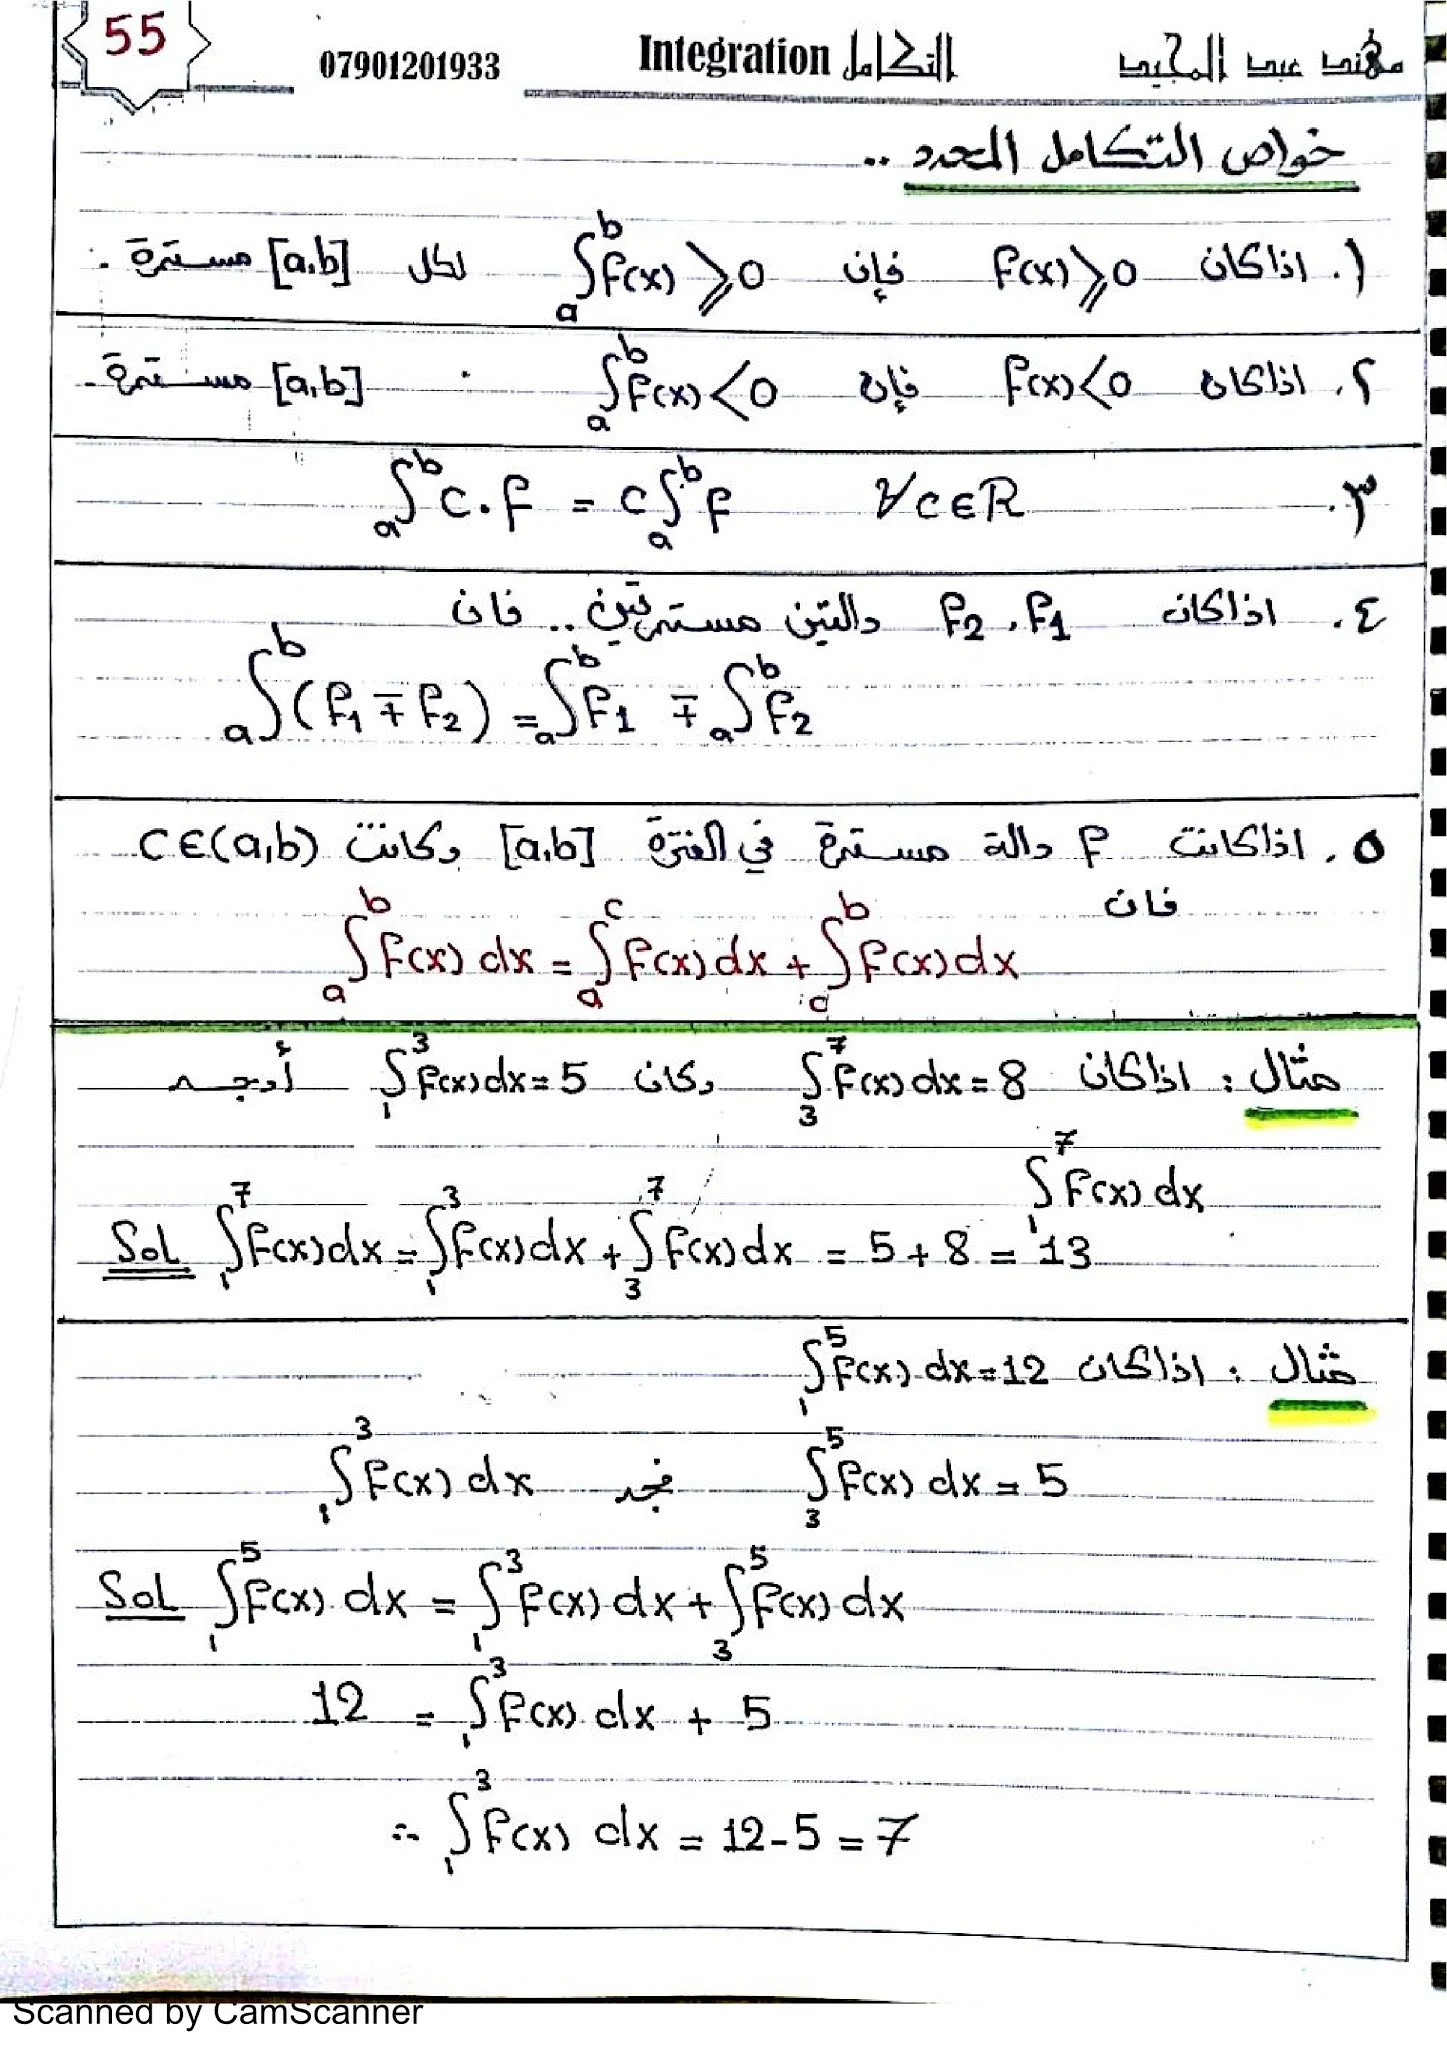 55
07901201933
Integration التكامل
مهند عبد المجيد
خواص التكامل المحدد ..
١. اذا كان f(x) ⩾ 0 فإن ∫ₐᵇ f(x) ⩾ 0 لكل [a,b] مستمرة .
٢. اذا كان f(x) < 0 فإن ∫ₐᵇ f(x) < 0 [a,b] مستمرة .
٣. ∫ₐᵇ c.f = c ∫ₐᵇ f ∀ c ∈ R
٤. اذا كان f₁ , f₂ دالتين مستمرتين .. فان
∫ₐᵇ (f₁ ∓ f₂) = ∫ₐᵇ f₁ ∓ ∫ₐᵇ f₂
٥. اذا كانت f دالة مستمرة في الفترة [a,b] وكانت c∈(a,b)
فان
∫ₐᵇ f(x) dx = ∫ₐᶜ f(x) dx + ∫_c^b f(x) dx
مثال : اذا كان ∫₃⁷ f(x) dx = 8 وكان ∫₁³ f(x) dx = 5 أوجد
∫₁⁷ f(x) dx
Sol ∫₁⁷ f(x) dx = ∫₁³ f(x) dx + ∫₃⁷ f(x) dx = 5 + 8 = 13
مثال : اذا كان ∫₁⁵ f(x) dx = 12
∫₃⁵ f(x) dx = 5 فجد ∫₁³ f(x) dx
Sol ∫₁⁵ f(x) dx = ∫₁³ f(x) dx + ∫₃⁵ f(x) dx
12 = ∫₁³ f(x) dx + 5
∴ ∫₁³ f(x) dx = 12 - 5 = 7
Scanned by CamScanner